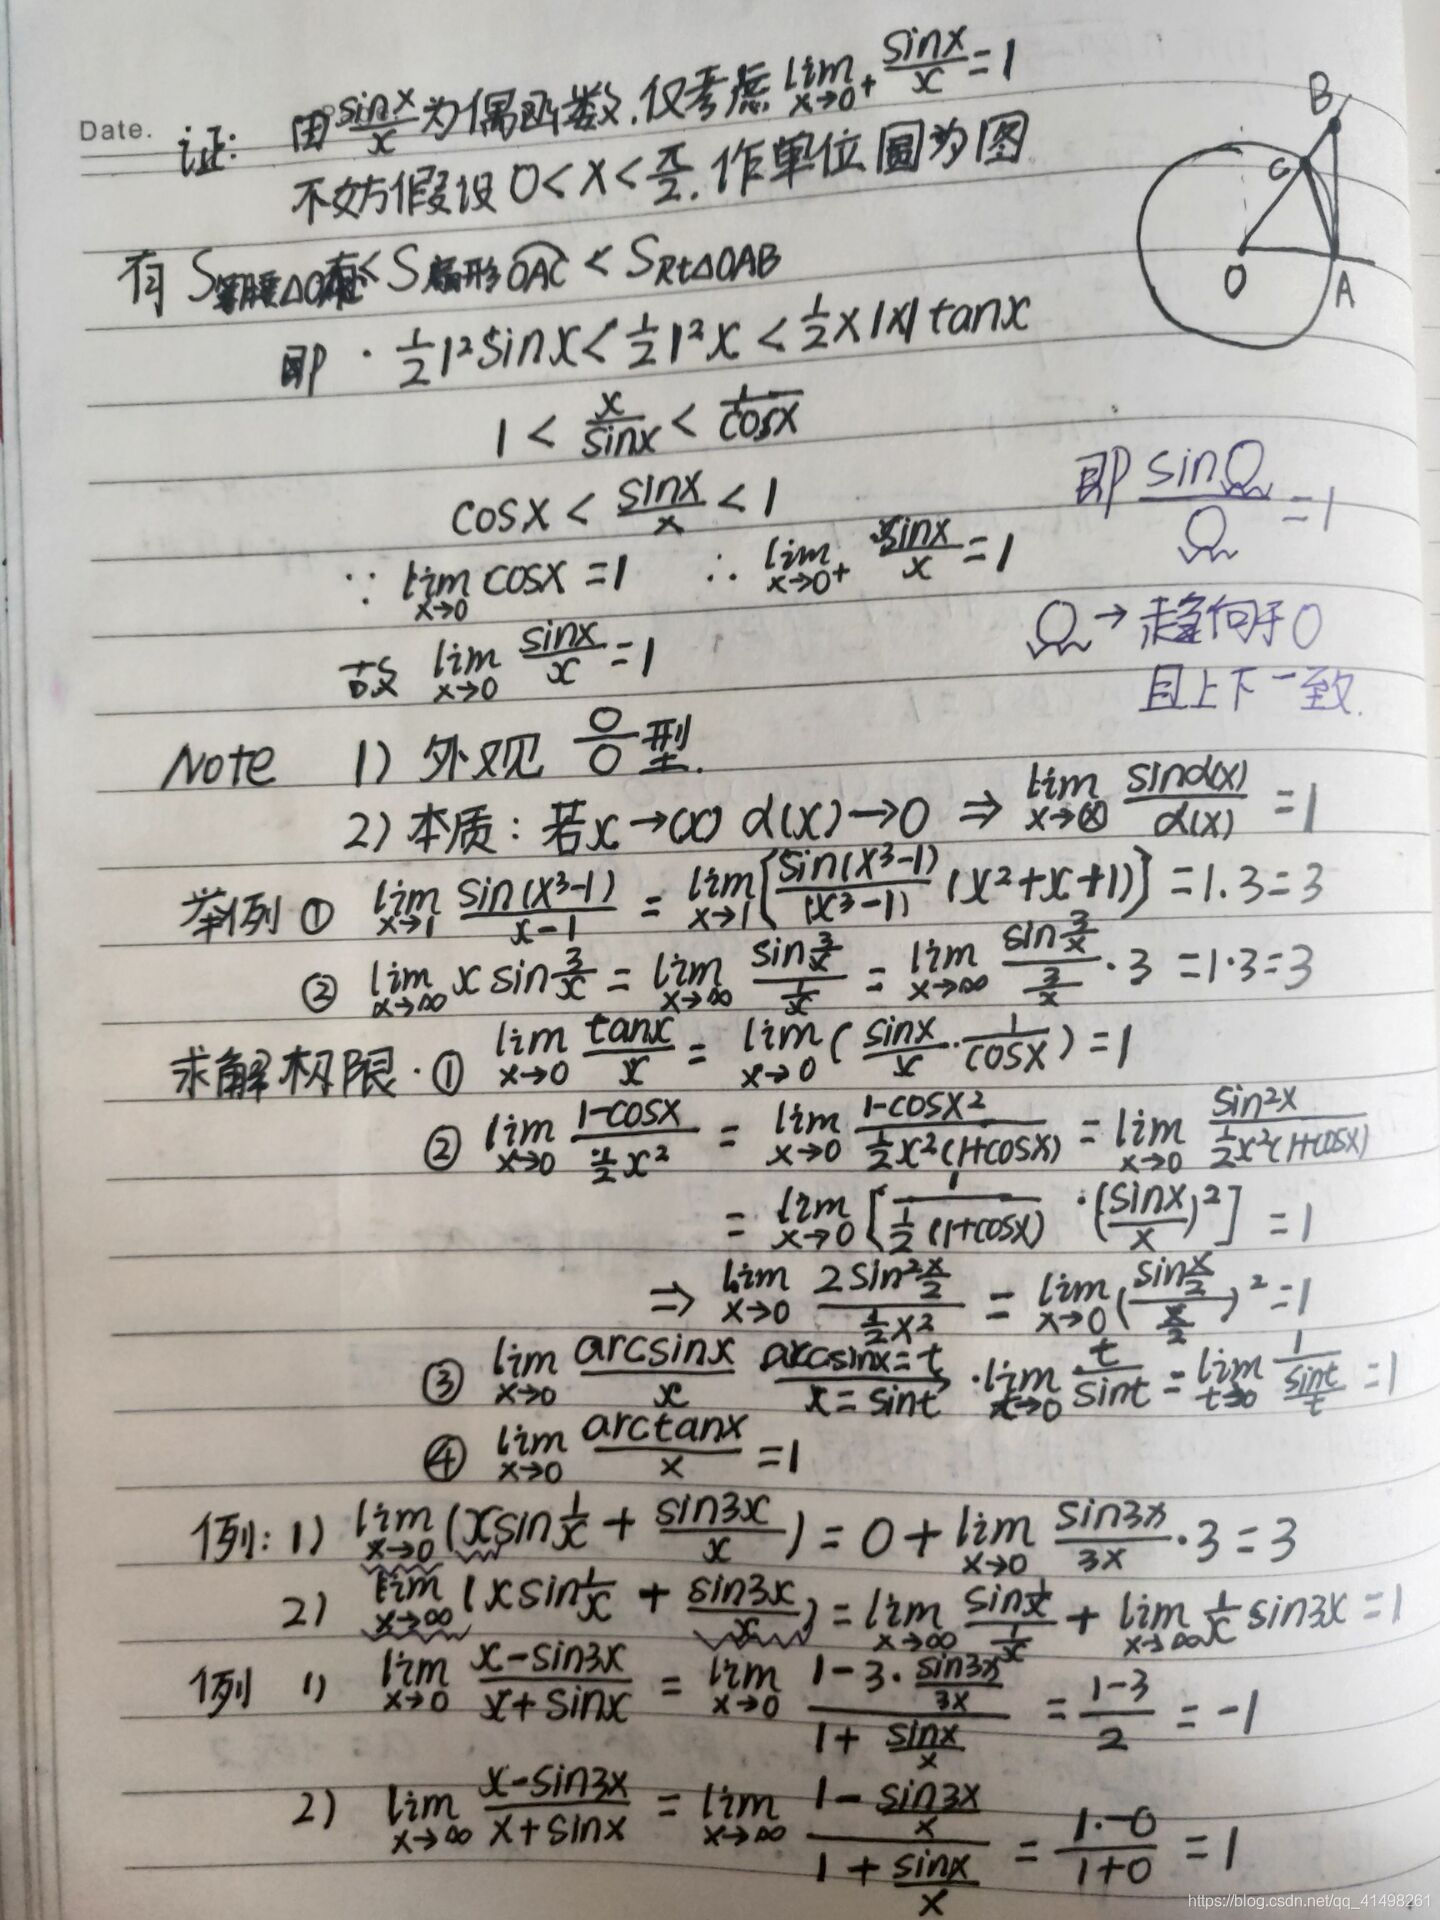 Date.
证: 由 sinx/x 为偶函数,仅考虑 lim x→0+ sinx/x = 1
不妨假设 0 < x < π/2. 作单位圆为图
B
C
O
A
有 S△ < S扇形OAC < SRt△OAB
即 · 1/2 1² sinx < 1/2 1² x < 1/2 x 1 x 1 tanx
1 < x/sinx < 1/cosx
cosx < sinx/x < 1
∵ lim x→0 cosx = 1 ∴ lim x→0+ sinx/x = 1
故 lim x→0 sinx/x = 1
即 sinΩ/Ω = 1
Ω → 趋向于0
且上下一致.
Note 1) 外观 0/0 型.
2) 本质: 若x→∞ α(x)→0 ⇒ lim x→∞ sinα(x)/α(x) = 1
举例 ① lim x→1 sin(x³-1)/x-1 = lim x→1 [sin(x³-1)/(x³-1) (x²+x+1)] = 1·3 = 3
② lim x→∞ x sin 3/x = lim x→∞ sin 3/x / 1/x = lim x→∞ sin 3/x / 3/x · 3 = 1·3 = 3
求解极限 · ① lim x→0 tanx/x = lim x→0 (sinx/x · 1/cosx) = 1
② lim x→0 1-cosx / 1/2 x² = lim x→0 1-cosx² / 1/2 x²(1+cosx) = lim x→0 sin²x / 1/2 x²(1+cosx)
= lim x→0 [1 / 1/2 (1+cosx) · (sinx/x)²] = 1
⇒ lim x→0 2sin² x/2 / 1/2 x² = lim x→0 (sin x/2 / x/2)² = 1
③ lim x→0 arcsinx/x arcsinx=t x=sint · lim x→0 t/sint = lim t→0 1 / sint/t = 1
④ lim x→0 arctanx/x = 1
例: 1) lim x→0 (xsin 1/x + sin3x/x) = 0 + lim x→0 sin3x/3x · 3 = 3
2) lim x→∞ (xsin 1/x + sin3x/x) = lim x→∞ sin 1/x / 1/x + lim x→∞ 1/x sin3x = 1
例 1) lim x→0 x-sin3x / x+sinx = lim x→0 1-3· sin3x/3x / 1+ sinx/x = 1-3 / 2 = -1
2) lim x→∞ x-sin3x / x+sinx = lim x→∞ 1- sin3x/x / 1+ sinx/x = 1·-0 / 1+0 = 1
https://blog.csdn.net/qq_41498261